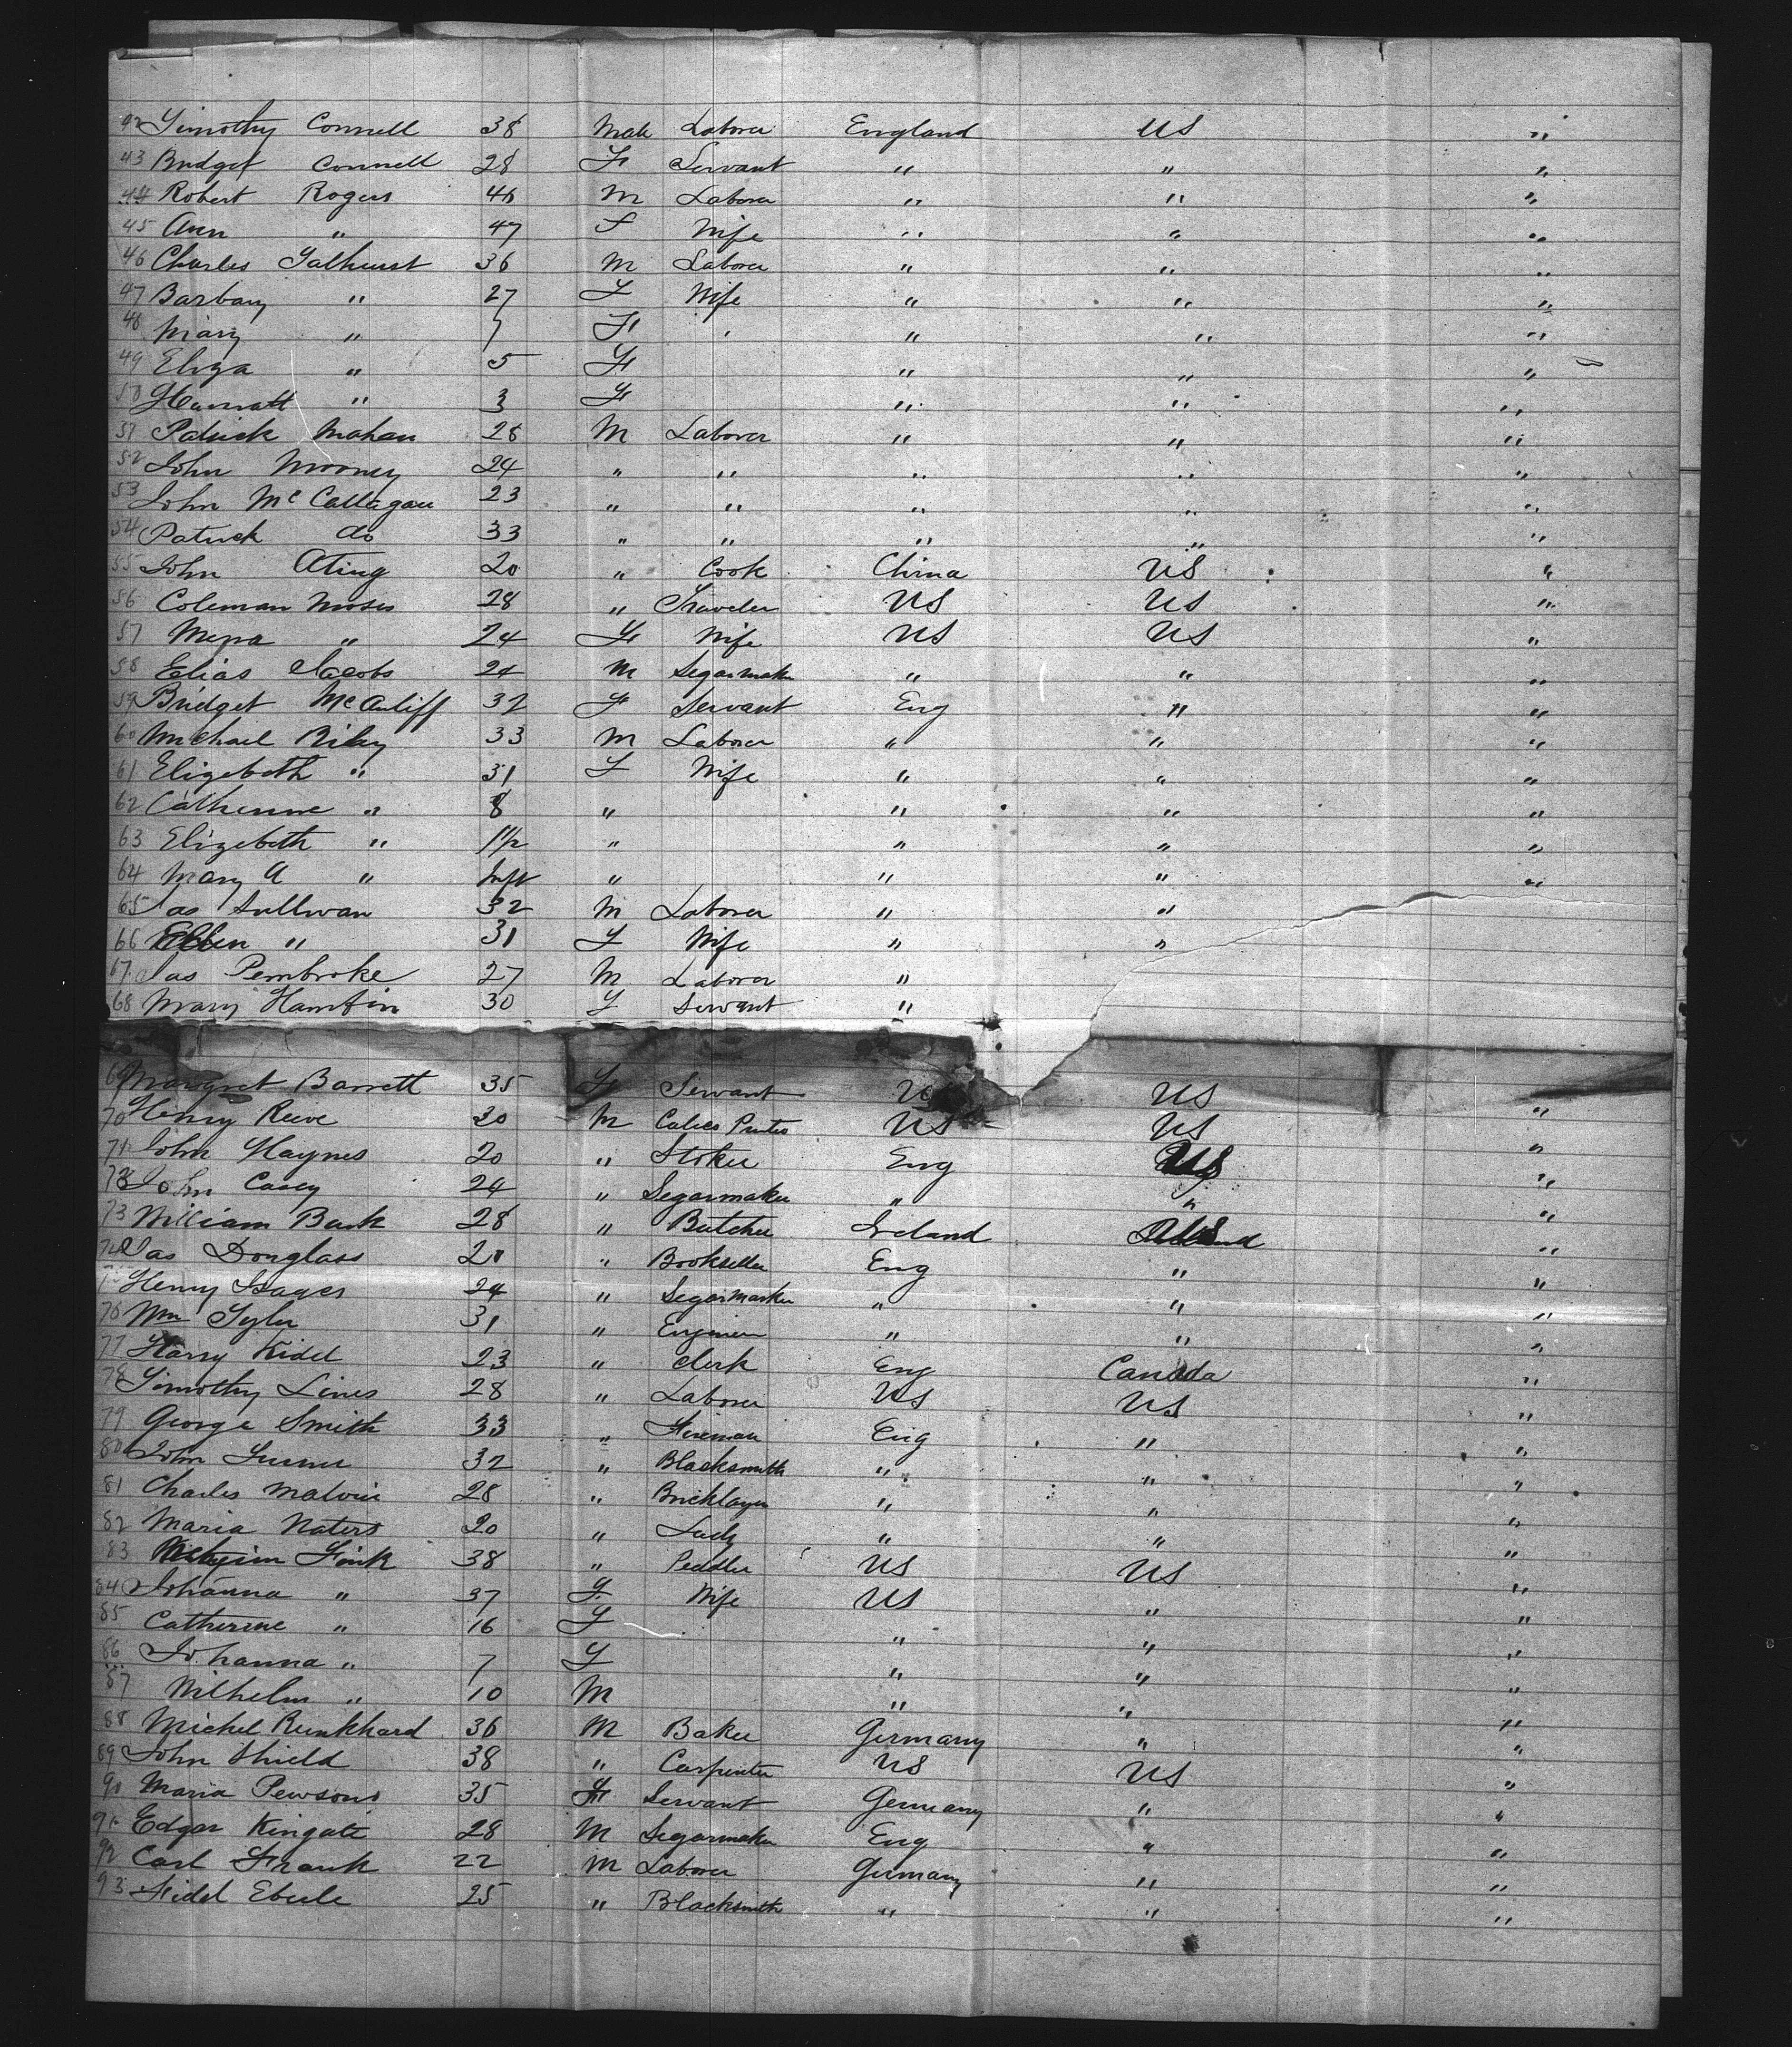 42 Timothy Connell 38 Male Laborer England US "
43 Bridget Connell 28 F Servant " " "
44 Robert Rogers 46 M Laborer " " "
45 Ann " 47 F Wife " " "
46 Charles Talhurst 36 M Laborer " " "
47 Barbary " 27 F Wife " " "
48 Mary " 7 F " " "
49 Eliza " 5 F " " "
50 Harratt " 3 F " " "
51 Patrick Mahan 28 M Laborer " " "
52 John Mooney 24 " " " " "
53 John McCallagan 23 " " " " "
54 Patrick do 33 " " " " "
55 John Ating 20 " Cook China US "
56 Coleman Moses 28 " Traveler US US "
57 " 24 F Wife US US "
58 Elias Jacobs 24 M Segarmaker " " "
59 Bridget McAuliff 32 F Servant Eng " "
60 Michael Riley 33 M Laborer " " "
61 Elizebeth " 31 F Wife " " "
62 Catherine " 8 " " " "
63 Elizebeth " 1 1/2 " " " "
64 Mary A " Inft " " " "
65 Jas Sullivan 32 M Laborer " "
66 Ellen " 31 F Wife " "
67 Jas Pembroke 27 M Laborer "
68 Mary 30 F Servant "
69 Margret Barrett 35 F Servant US US "
70 Henry Reeve 20 M Calico US US "
71 John Haynes 20 " Stoker Eng US "
72 John Casey 24 " Segarmaker " " "
73 William Bark 28 " Butcher Ireland US "
74 Jas Douglass 20 " Bookseller Eng " "
75 Henry Isaacs 24 " Segarmarker " " "
76 Wm Tyler 31 " Engineer " " "
77 Harry Kidel 23 " Clerk Eng Canada "
78 Timothy Lines 28 " Laborer US US "
79 George Smith 33 " Fireman Eng " "
80 John Turner 32 " Blacksmith " " "
81 Charles Malvin 28 " Bricklayer " " "
82 Maria Naters 20 " Lady " " "
83 Fink 38 " Peddler US US "
84 Johanna " 37 F Wife US " "
85 Catherine " 16 F " " "
86 Johanna " 7 F " " "
87 Wilhelm " 10 M " " "
88 Michel Runkhard 36 M Baker Germany " "
89 John Shield 38 " Carpenter US US "
90 Maria Pewsons 35 F Servant Germany " "
91 Edgar Kingate 28 M Segarmaker Eng " "
92 Carl Frank 22 M Laborer Germany " "
93 Fidel Eberle 25 " Blacksmith " " "